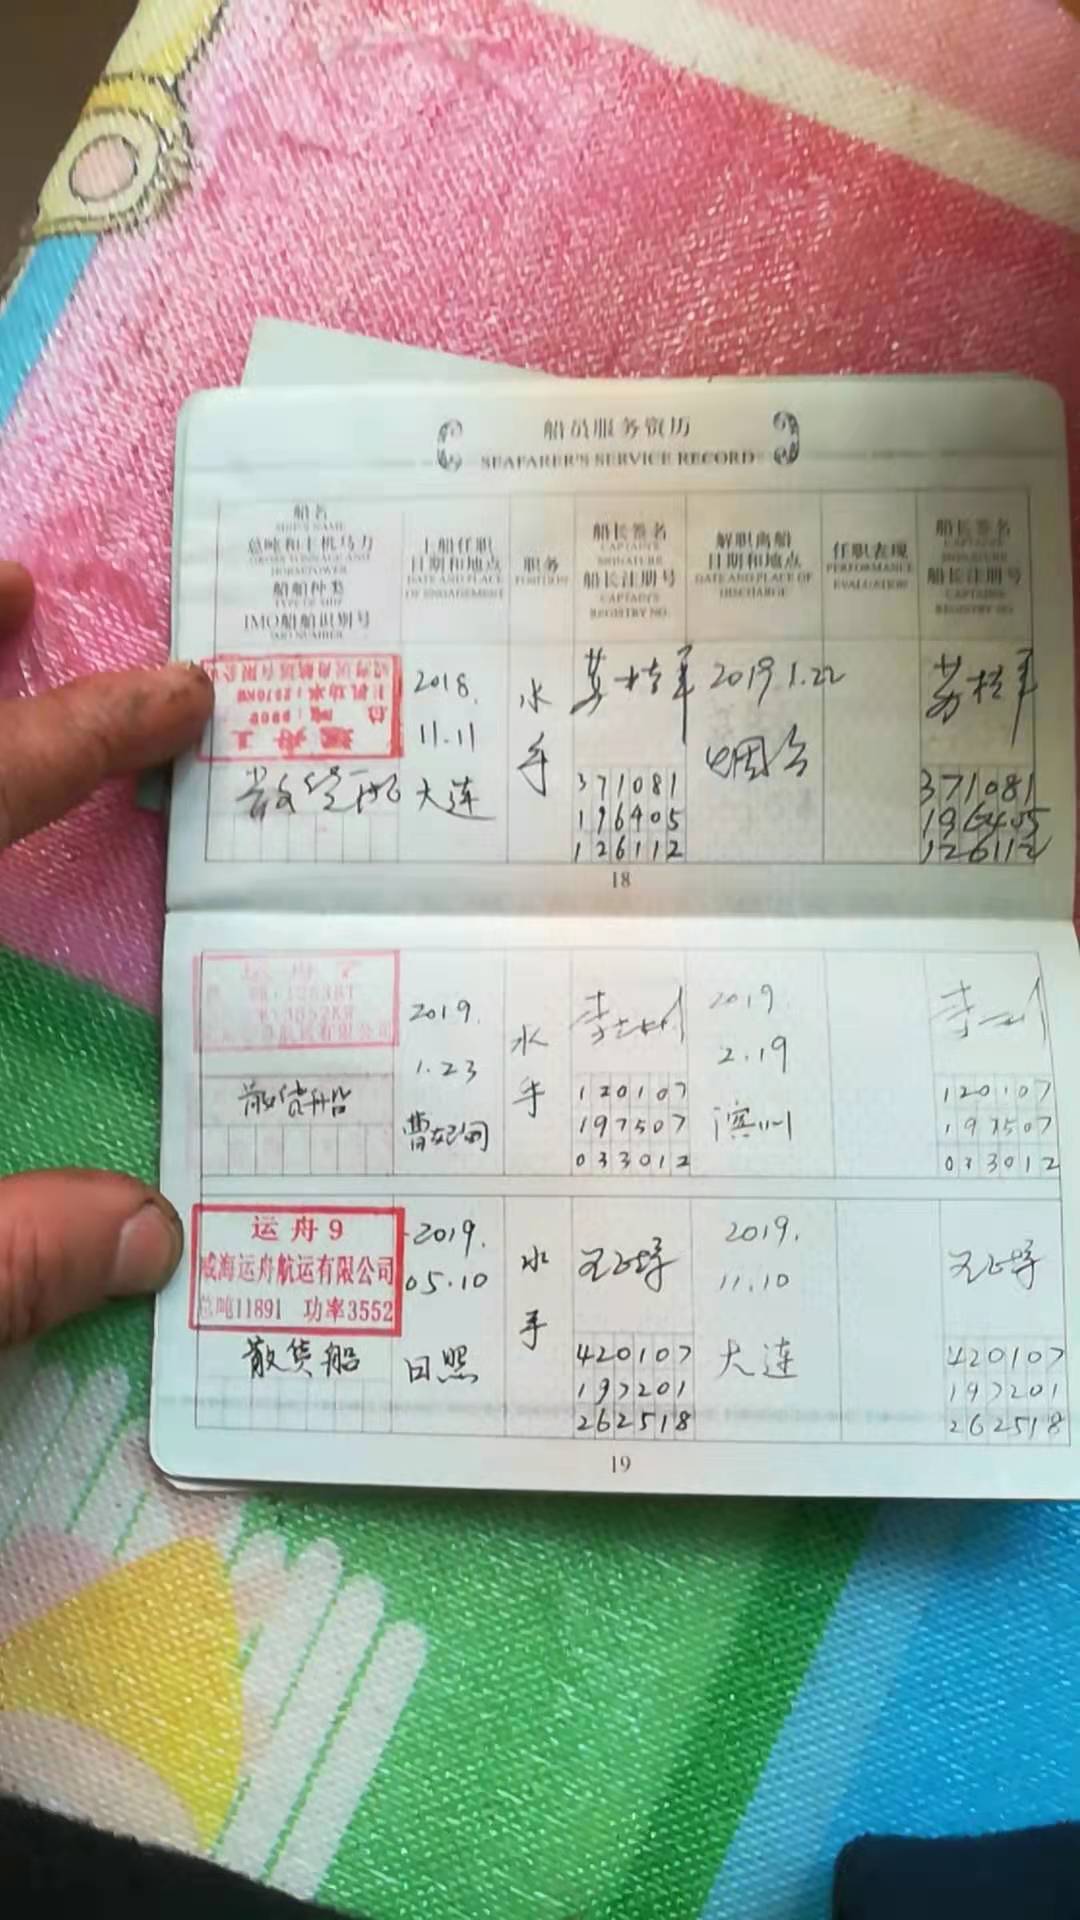 船员服务资历
SEAFARER'S SERVICE RECORD
船名
SHIP'S NAME
总吨和主机马力
GROSS TONNAGE AND
HORSEPOWER
船舶种类
TYPE OF SHIP
IMO船舶识别号
IMO NUMBER
上船任职
日期和地点
DATE AND PLACE
OF ENGAGEMENT
职务
POSITION
船长签名
CAPTAIN'S
SIGNATURE
船长注册号
CAPTAIN'S
REGISTRY NO.
解职离船
日期和地点
DATE AND PLACE OF
DISCHARGE
任职表现
PERFORMANCE
EVALUATION
船长签名
CAPTAIN'S
SIGNATURE
船长注册号
CAPTAIN'S
REGISTRY NO.
散货船
2018.
11.11
大连
水
手
371081
196405
126112
2019.1.22
烟台
371081
196405
126112
18
散货船
2019.
1.23
曹妃甸
水
手
120107
197507
033012
2019.
2.19
滨州
120107
197507
033012
运舟9
威海运舟航运有限公司
总吨11891 功率3552
散货船
2019.
05.10
日照
水
手
420107
197201
262518
2019.
11.10
大连
420107
197201
262518
19